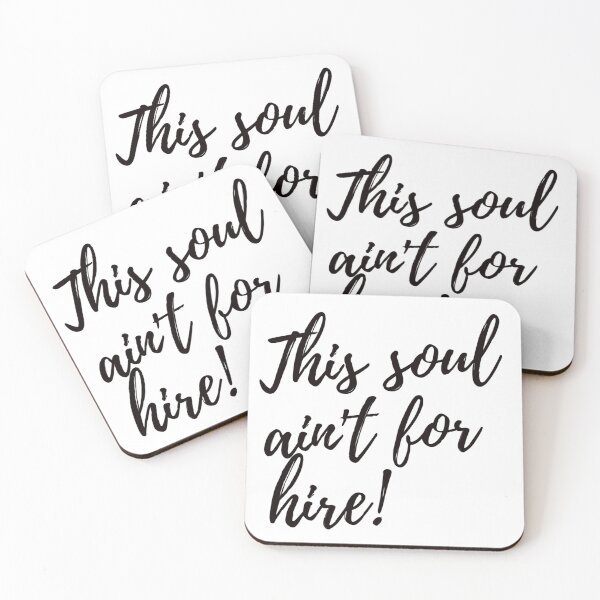 This soul
ain't for
This soul
ain't for
This soul
ain't for
hire!
This soul
ain't for
hire!